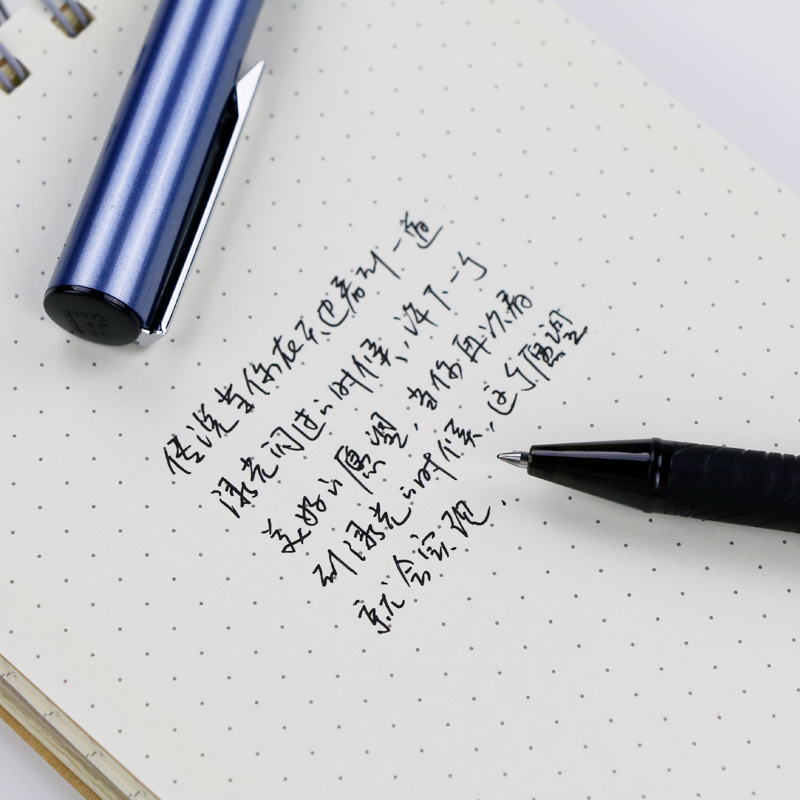 传说当你在天边看到一道
绿光闪过的时候，许下一个
美好的愿望，当你再次看
到绿光的时候，这个愿望
就会实现.